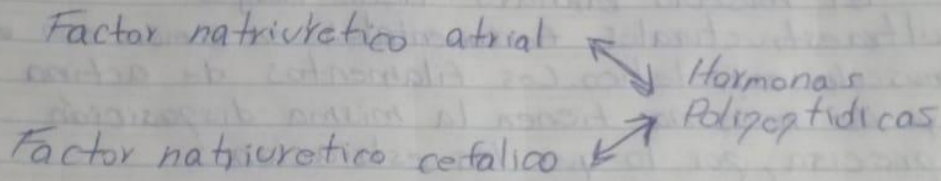 Factor natriuretico atrial
Hormonas
Polipeptidicas
Factor natriuretico cefalico